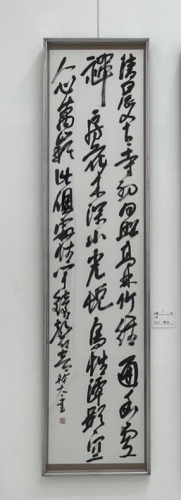 清晨入古寺初日照高林竹徑通幽處
禪房花木深山光悅鳥性潭影空
人心萬籟此俱寂惟聞鐘磬音書